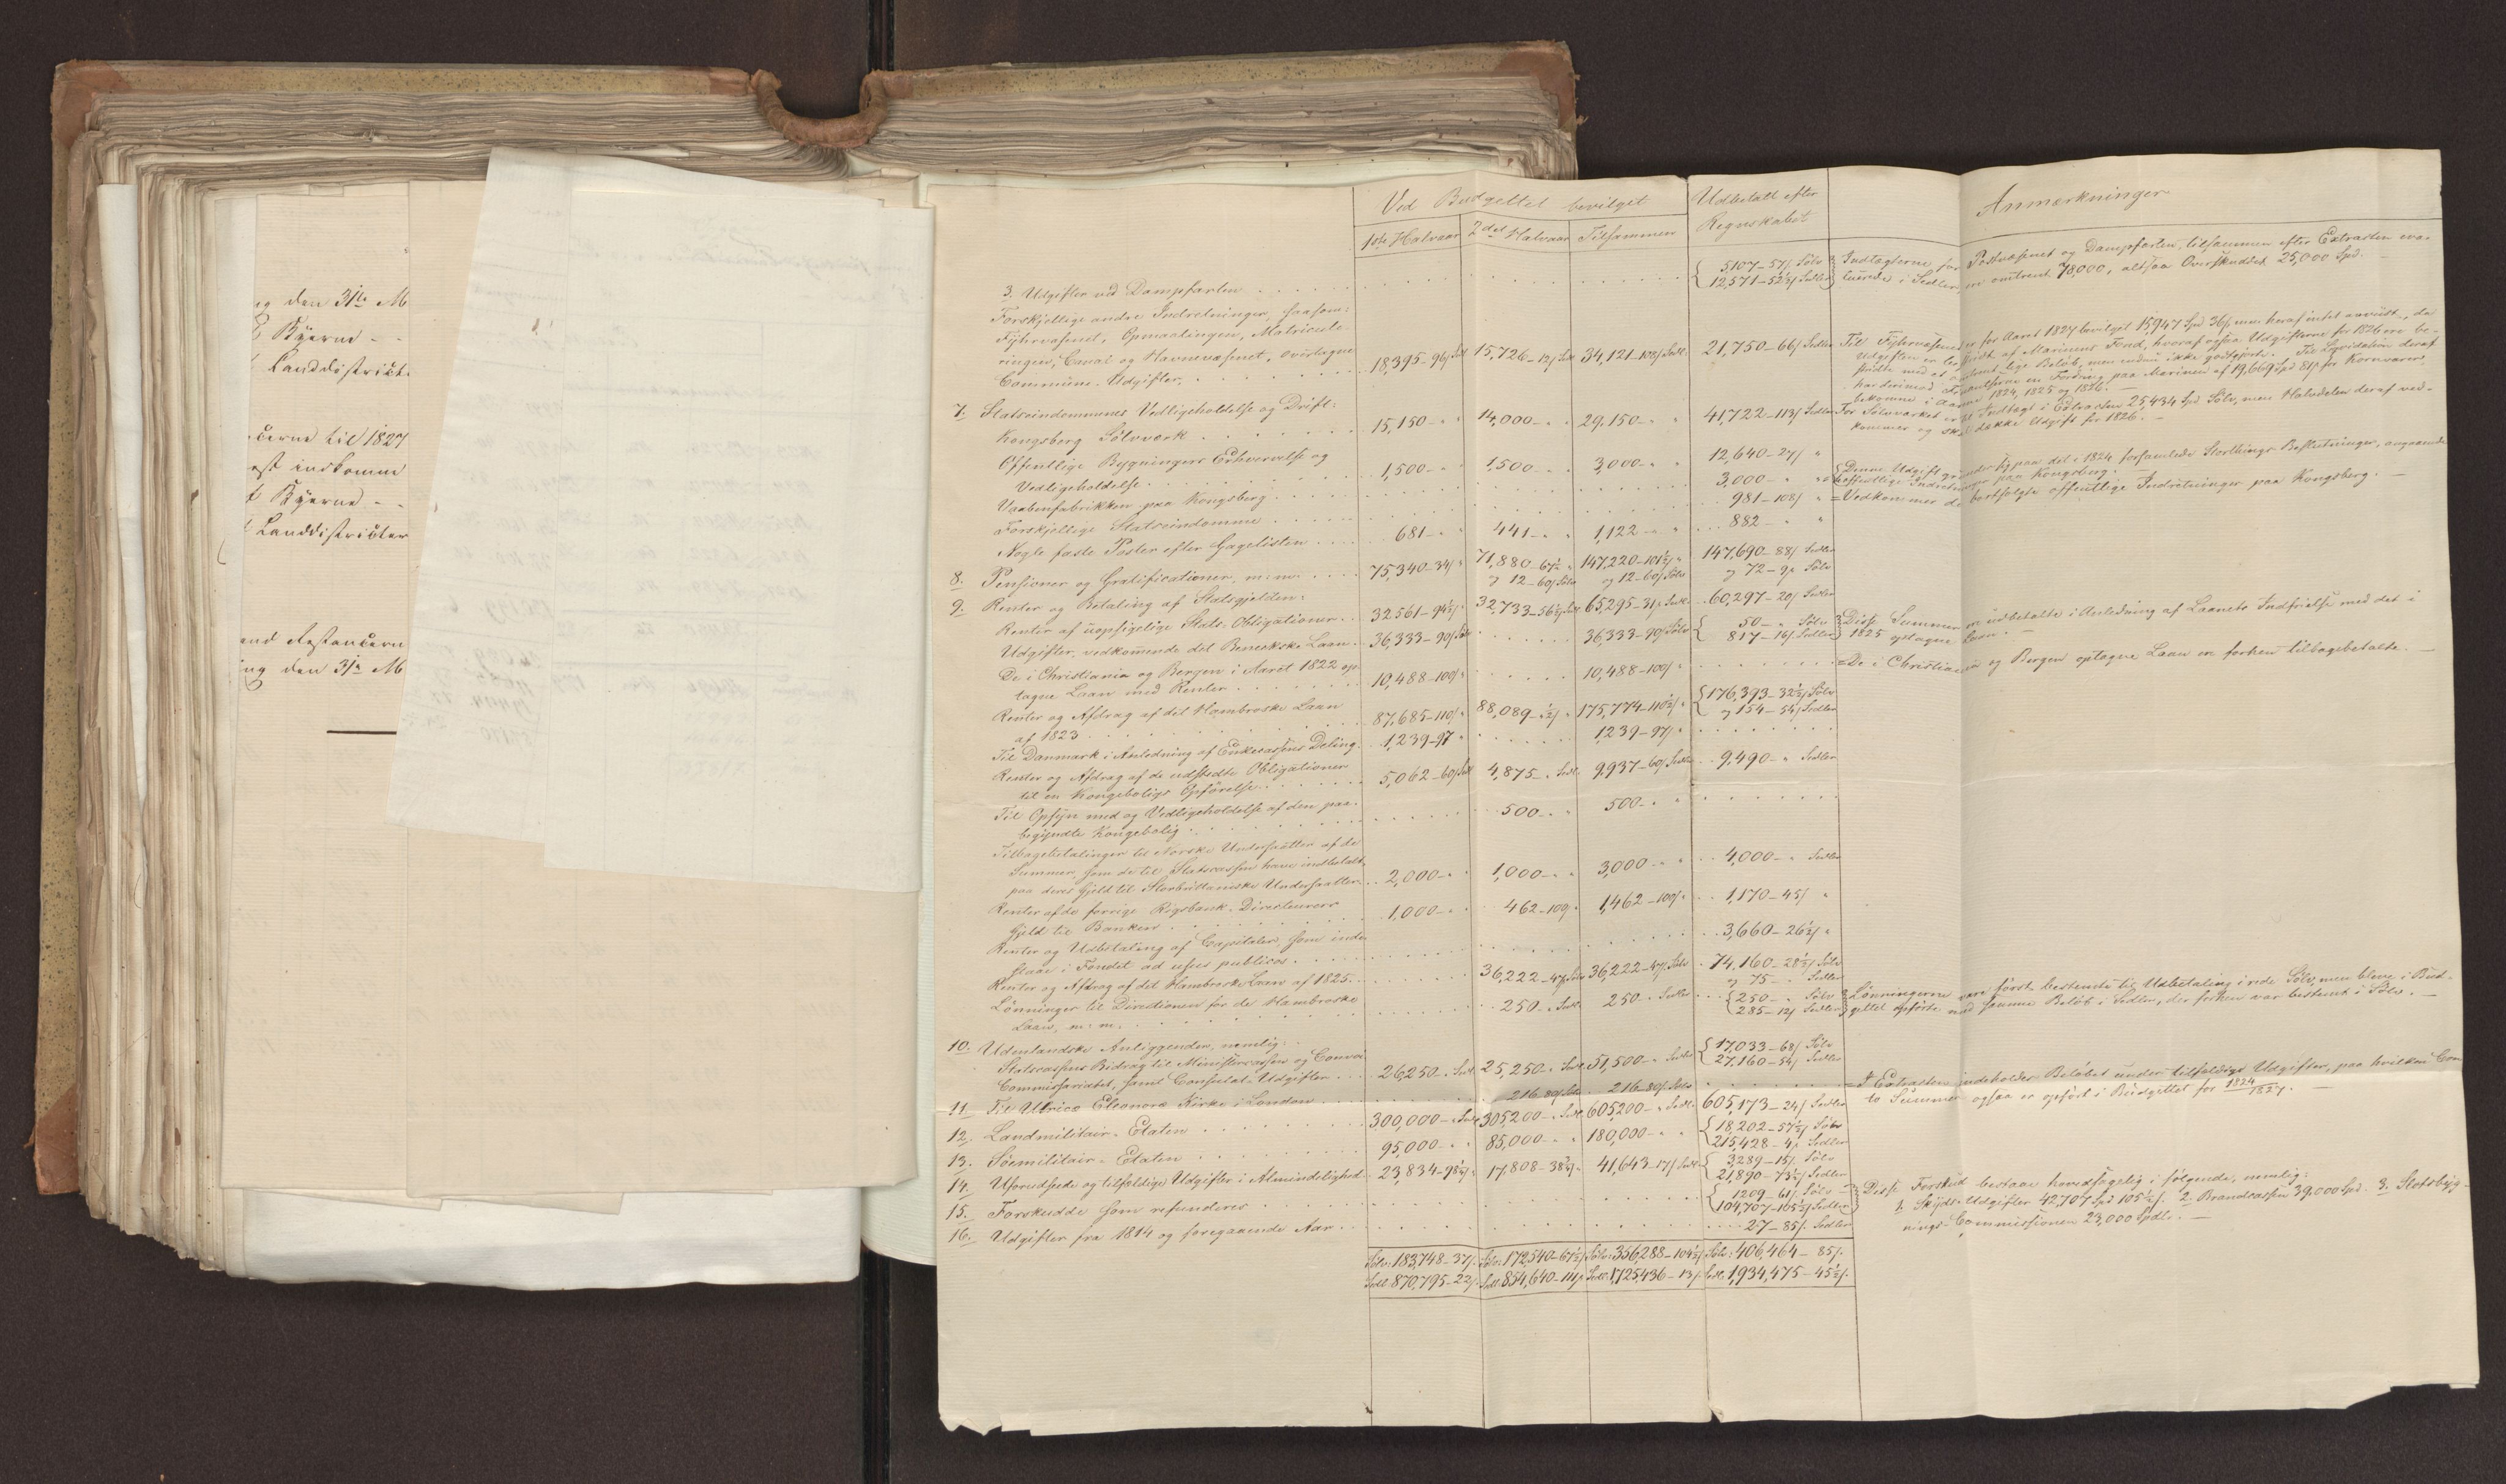 ng den 31te M
Byerne - -
Landdistrict
cerne til 1827
est indkomme
Byerne - -
Landdistricter
and Restancern
ng den 31te M
Ved Budgettet bevilget
Udbetalt efter Regnskabet
Anmærkninger
1ste Halvaar 2det Halvaar Tilsammen
3. Udgifter ved Dampfarten . . . . 5107-57ß Sølv
12,571-52½ß Sedler
Indtægterne for Postvæsenet og Dampfarten, tilsammen efter Extracten eva-
luerede i Sedler, er omtrent 78,000, altsaa Overskuddet 25,000 Spd.
Forskjellige andre Indretninger, saasom:
Fyhrvæsenet, Opmaalingen, Matricule-
ringen, Canal og Havnevæsenet, overtagne
Commune-Udgifter, . . . 18,395-96ß Sedl. 15,726-12ß Sedl. 34,121-108ß Sedl. 21,750-66ß Sedler
Til Fyhrvæsenet er for Aaret 1827 bevilget 15,947 Spd 36ß, men heraf intet anviist, da
Udgiften er bestridt af Marinens Fond, hvoraf ogsaa Udgifterne for 1826 ere be-
stridte med et omtrent lige Beløb, men endnu ikke godtgjorte. Til Liqvidation deraf
har derimod Finantserne en Fordring paa Marinen af 19,669 Spd 81ß for Kornvarer
bekomne i Aarene 1824, 1825 og 1826. —
7. Statseiendommenes Vedligeholdelse og Drift:
Kongsberg Sølvværk . . . 15,150 - " 14,000 - " 29,150 - " 41,722-113ß Sedler
For Sølvværket er til Indtægt i Extracten 25,434 Spd Sølv, men Halvdelen deraf ved-
kommer og skal dække Udgift for 1826. —
Offentlige Bygningers Erhvervelse og
Vedligeholdelse . . . 1,500 - " 1,500 - " 3,000 - " 12,640-27ß "
Vaabenfabrikken paa Kongsberg . . . 3,000 - "
Denne Udgift grunder sig paa det i 1824 forsamlede Storthings Beslutninger, angaaende
offentlige Indretninger paa Kongsberg.
Forskjellige Statseiendomme . . . 981-108ß "
= Vedkommer de bortsolgte offentlige Indretninger paa Kongsberg. —
Nogle faste Poster efter Gagelisten . . . 681 - " 441 - " 1,122 - " 882 - "
8. Pensioner og Gratificationer, m: m: . . . 75,340-34ß " 71,880-67½ " 147,220-101½ß " 147,690-88ß Sedler
og 12-60ß Sølv og 12-60ß Sølv og 72-9ß Sølv
9. Renter og Betaling af Statsgjelden:
Renter af uopsigelige Stats-Obligationer . . 32,561-94½ß " 32,733-56½ß Sedl. 65,295-31ß Sedl. 60,297-20ß Sedler
Udgifter, vedkommende det Beneckske Laan . 36,333-90ß Sølv . . . 36,333-90ß Sølv 50 - " Sølv
817-16ß Sedler
Disse Summer ere udbetalte i Anledning af Laanets Indfrielse med det i
1825 optagne Laan. —
De i Christiania og Bergen i Aaret 1822 op-
tagne Laan med Renter . . . 10,488-100ß " . . . 10,488-100ß " . . .
= De i Christiania og Bergen optagne Laan ere forhen tilbagebetalte. —
Renter og Afdrag af det Hambroske Laan
af 1823 . . . 87,685-110ß " 88,089-½ß " 175,774-110½ß " 176,393-32½ß Sølv
og 154-54ß Sedler
Til Danmark i Anledning af Enkecassens Deling . 1,239-97 " . . . 1,239-97ß " . . .
Renter og Afdrag af de udstedte Obligationer
til en Kongeboligs Opførelse . . . 5,062-60ß Sedl. 4,875 - " Sedl. 9,937-60ß Sedler 9,490 - " Sedler
Til Opsyn med og Vedligeholdelse af den paa-
begyndte Kongebolig . . . 500 - " 500 - " . . .
Tilbagebetalinger til Norske Undersaatter af de
Summer, som de til Statscassen have indbetalt
paa deres Gjeld til Storbritanniske Undersaatter . . 2,000 - " 1,000 - " 3,000 - " 4,000 - " Sedler
Renter af de forrige Rigsbank-Directeurers
Gjeld til Banken . . . 1,000 - " 462-100 " 1,462-100ß " 1,170-45ß "
Renter og Udbetaling af Capitaler, som inde-
staae i Fondet ad usus publicos . . . 3,660-26½ß "
Renter og Afdrag af det Hambroske Laan af 1825 . . 36,222-47ß Sølv 36,222-47ß Sølv 74,160-28½ß Sølv
og 75 - " Sedler
Lønninger til Directionen for de Hambroske
Laan, m: m: . . . 250 - " Sedl. 250 - " Sedler 250 - " Sølv
285-12ß Sedler
Lønningerne vare først bestemte til Udbetaling i rede Sølv, men bleve i Bud-
gettet opførte med samme Beløb i Sedler, der forhen var bestemt i Sølv. —
10. Udenlandske Anliggender, nemlig:
Statscassens Bidrag til Ministercassen og Convoi-
Commissariatet, samt Consulat-Udgifter . . . 26,250 - " Sedl. 25,250 - " Sedl. 51,500 - " Sedler 17,033-68ß Sølv
27,160-54ß Sedler
11. Til Ulrica Eleonora Kirke i London . . . 216-80ß Sølv 216-80ß Sølv . . .
= I Extracten indeholdes Beløbet under tilfældige Udgifter, paa hvilken Con-
to Summen ogsaa er opført i Budgettet for 1824/1827. —
12. Landmilitair-Etaten . . . 300,000 - " Sedl. 305,200 - " Sedl. 605,200 - " Sedl. 605,173-24ß Sedler
13. Søemilitair-Etaten . . . 95,000 - " 85,000 - " 180,000 - " 18,202-57½ß Sølv
215,428-4ß Sedler
14. Uforudseede og tilfældige Udgifter i Almindelighed . 23,834-98½ß " 17,808-38½ß " 41,643-17ß Sedl. 3,289-15ß Sølv
21,890-73½ß Sedler
15. Forskudde som refunderes . . . 1209-61ß Sølv
104,707-105½ß Sedler
Disse Forskud bestaae hovedsagelig i følgende, nemlig:
1. Skyds-Udgifter 42,707 Spd 105½ß. 2. Brandcassen 39,000 Spd. 3. Slotsbyg-
nings-Commissionen 23,000 Spdlr. —
16. Udgifter fra 1814 og foregaaende Aar . . . 27-85ß Sedler
Sølv: 183,748-37ß. Sølv: 172,540-67½ß Sølv: 356,288-104½ß Sølv: 406,464-85ß.
Sedl. 870,795-22ß. Sedl. 854,640-111ß Sedl. 1,725,436-13ß. Sedl. 1,934,475-45½ß.